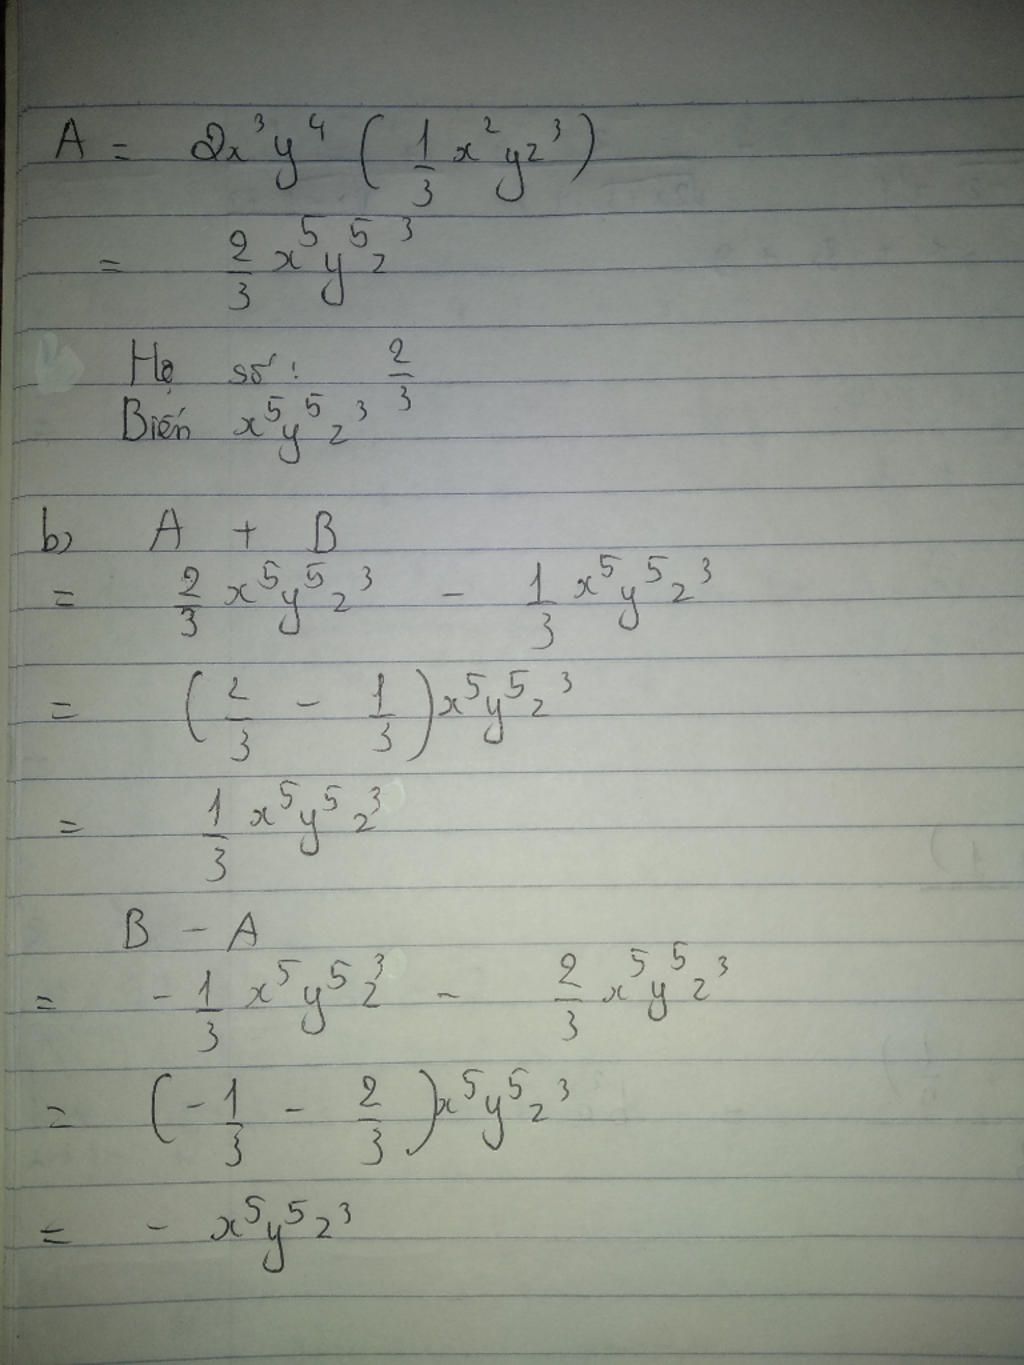 A = 2x³y⁴ ( 1/3 x²yz³ )
= 2/3 x⁵y⁵z³
Hệ số: 2/3
Biến x⁵y⁵z³
b) A + B
= 2/3 x⁵y⁵z³ - 1/3 x⁵y⁵z³
= ( 2/3 - 1/3 ) x⁵y⁵z³
= 1/3 x⁵y⁵z³
B - A
= - 1/3 x⁵y⁵z³ - 2/3 x⁵y⁵z³
= ( - 1/3 - 2/3 ) x⁵y⁵z³
= - x⁵y⁵z³